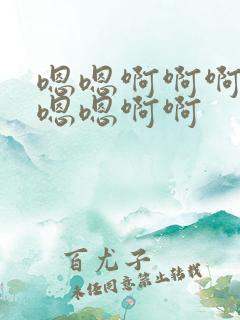 嗯嗯啊啊啊
嗯嗯啊啊
百尤子
未经同意禁止转载